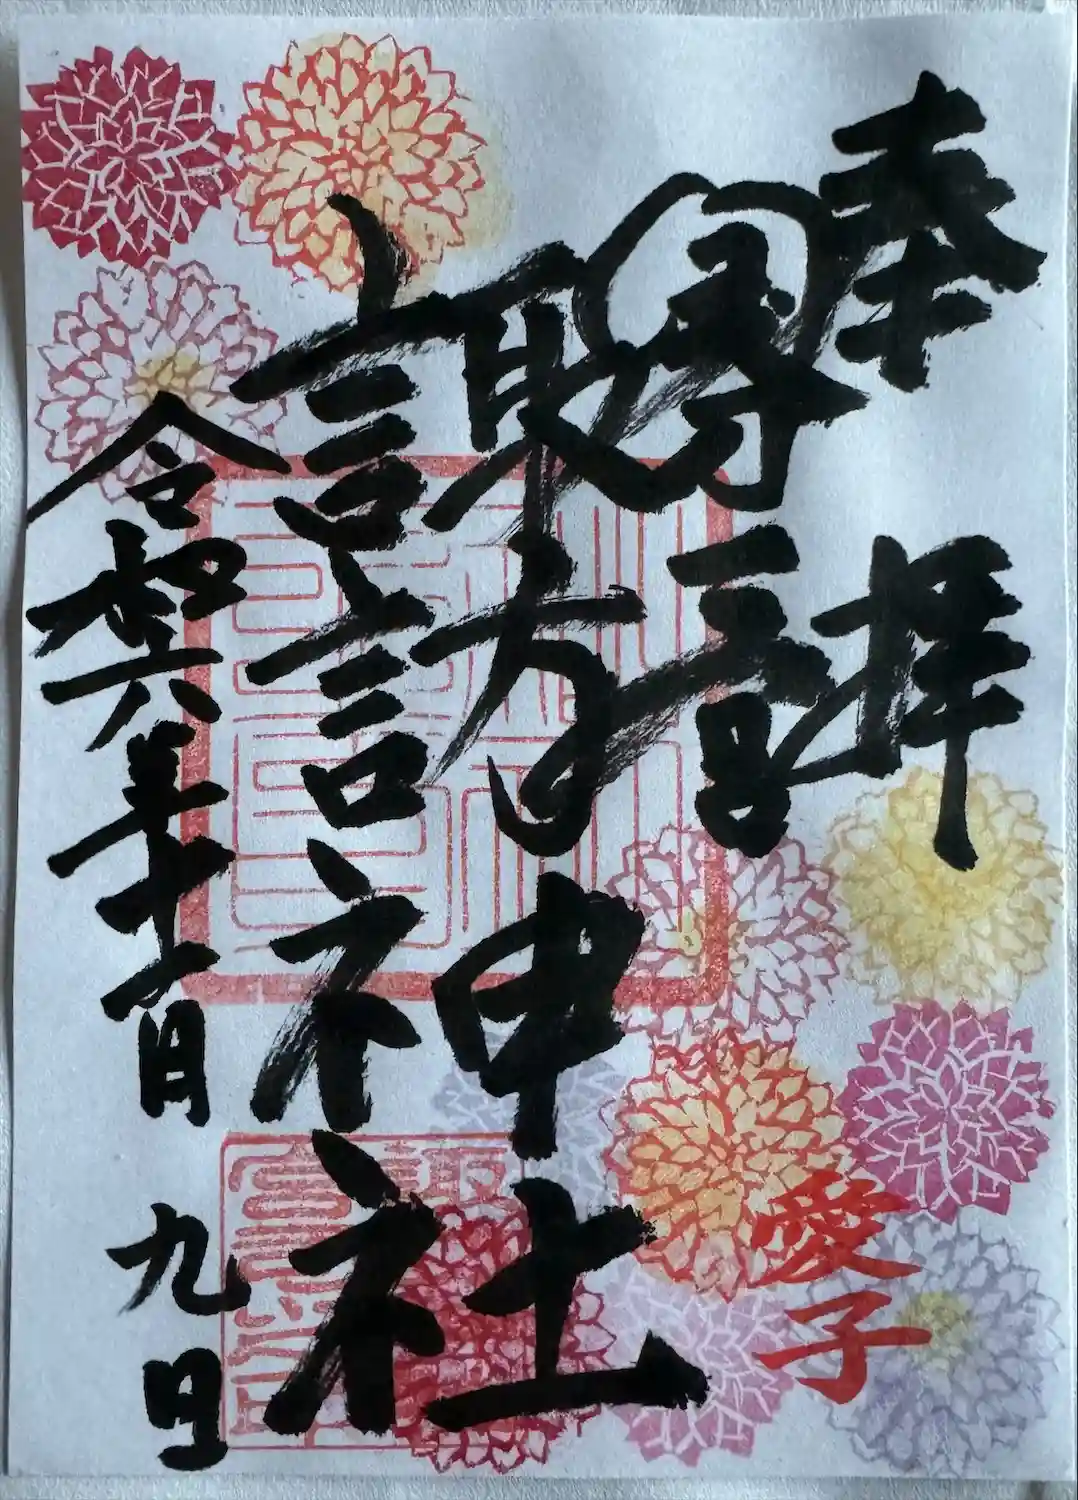 奉拝
諏訪神社
令和六年十一月九日
愛子